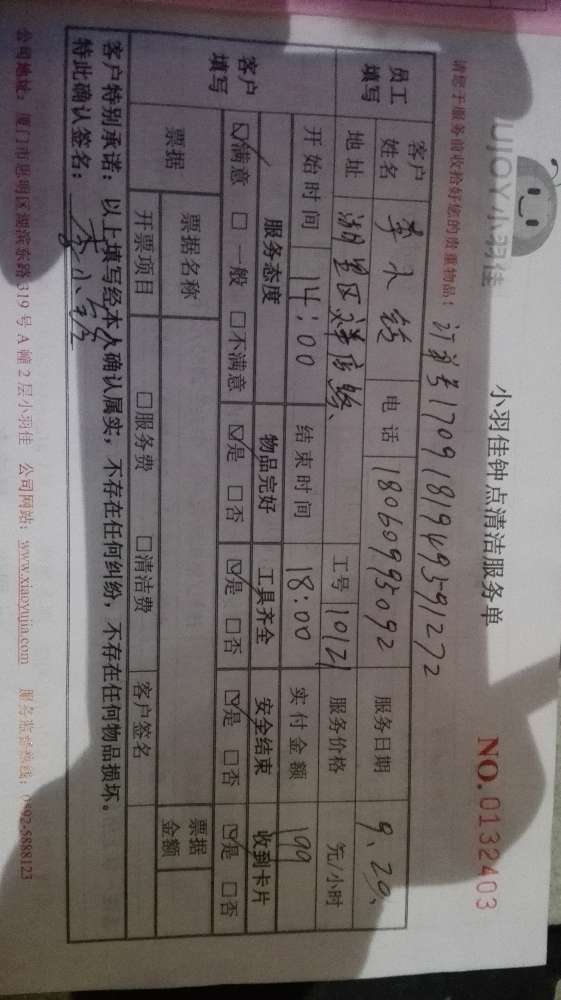 UJOY小羽佳
小羽佳钟点清洁服务单
NO.0132403
请您于服务前收拾好您的贵重物品! 订单号170918194959127 2
员工填写 客户姓名 李小 电话 18060995092 服务日期 9.29、
地址 湖里区 工号 10121 服务价格 元/小时
开始时间 14:00 结束时间 18:00 实付金额 199
客户填写 服务态度 物品完好 工具齐全 安全结束 收到卡片
☑满意 □一般 □不满意 ☑是 □否 ☑是 □否 ☑是 □否 ☑是 □否
票据 票据名称 票据金额
开票项目 □服务费 □清洁费 客户签名
客户特别承诺：以上填写经本人确认属实，不存在任何纠纷，不存在任何物品损坏。
特此确认签名： 李小
公司地址：厦门市思明区湖滨东路319号A幢2层小羽佳 公司网站：www.xiaoyujia.com 服务监督热线：0592-5888123